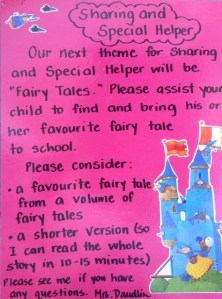 Sharing and
Special Helper
Our next theme for Sharing
and Special Helper will be
"Fairy Tales." Please assist your
child to find and bring his or
her favourite fairy tale
to school.
Please consider:
• a favourite fairy tale
from a volume of
fairy tales
• a shorter version (so
I can read the whole
story in 10-15 minutes)
Please see me if you have
any questions. Mrs.